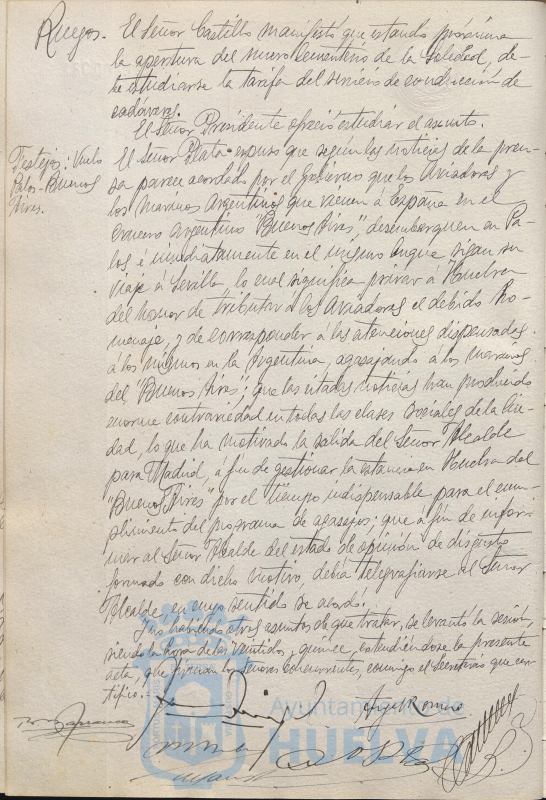 Ruegos. El Señor Castillo manifestó que estando próxima
la apertura del nuevo Cementerio de la Soledad, de-
be estudiarse la tarifa del servicio de conducción de
cadáveres.
El Señor Presidente ofreció estudiar el asunto.
Festejos: Vuelo
Palos-Buenos
Aires.
El Señor Plata expuso que según las noticias de la pren-
sa parece acordado por el Gobierno que los Aviadores y
los marinos argentinos que vienen á España en el
crucero argentino "Buenos Aires", desembarquen en Pa-
los é inmediatamente en el mismo buque sigan su
viaje á Sevilla, lo cual significa privar á Huelva
del honor de tributar á los Aviadores el debido ho-
menaje, y de corresponder á las atenciones dispensadas
á los mismos en la Argentina, agasajando á los marinos
del "Buenos Aires"; que las citadas noticias han producido
enorme contrariedad en todas las clases sociales de la Ciu-
dad, lo que ha motivado la salida del Señor Alcalde
para Madrid, á fin de gestionar la estancia en Huelva del
"Buenos Aires" por el tiempo indispensable para el cum-
plimiento del programa de agasajos; que á fin de infor-
mar al Señor Alcalde del estado de opinión de disgusto
formado con dicho motivo, debía telegrafiarse al Señor
Alcalde, en cuyo sentido se acordó.
Y no habiendo otros asuntos de que tratar, se levantó la sesión,
siendo la hora de las veintidos, quince, extendiéndose la presente
acta, que firman los Señores concurrentes, conmigo el Secretario que cer-
tifico.
Angel Romero
Ayuntamiento de
HUELVA